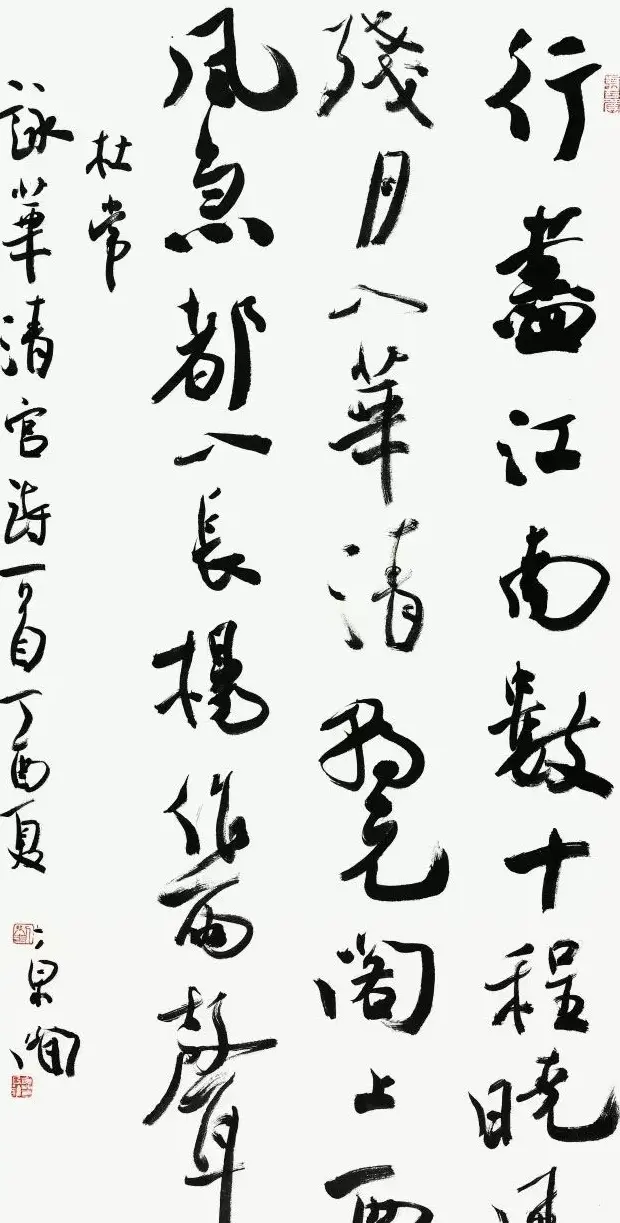 行盡江南數十程曉
殘月入華清朝元閣上西
風急都入長楊作雨聲
杜常
詠華清宮詩一首丁酉夏